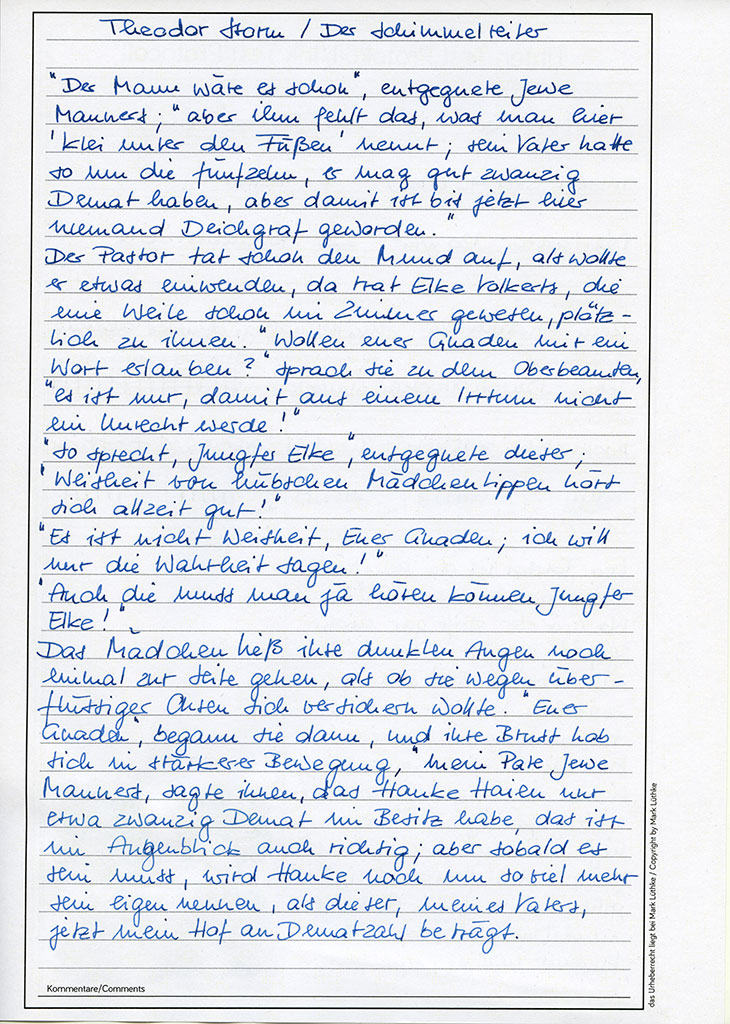 Theodor Storm / Der Schimmelreiter
"Der Mann wäre es schon", entgegnete Jewe
Manners; "aber ihm fehlt das, was man hier
'Klei unter den Füßen' nennt; sein Vater hatte
so um die fünfzehn, er mag gut zwanzig
Demat haben, aber damit ist bis jetzt hier
niemand Deichgraf geworden."
Der Pastor tat schon den Mund auf, als wollte
er etwas einwenden, da trat Elke Volkerts, die
eine Weile schon im Zimmer gewesen, plötz-
lich zu ihnen. "Wollen euer Gnaden mir ein
Wort erlauben?" sprach sie zu dem Oberbeamten,
"es ist nur, damit aus einem Irrtum nicht
ein Unrecht werde!"
"So sprecht, Jungfer Elke", entgegnete dieser;
"Weisheit von hübschen Mädchenlippen hört
sich allzeit gut!"
"Es ist nicht Weisheit, Euer Gnaden; ich will
nur die Wahrheit sagen!"
"Auch die muss man ja hören können Jungfer
Elke!"
Das Mädchen ließ ihre dunklen Augen noch
einmal zur Seite gehen, als ob sie wegen über-
flüssiger Ohren sich versichern wollte. "Euer
Gnaden", begann sie dann, und ihre Brust hob
sich in stärkerer Bewegung, "mein Pate Jewe
Manners, sagte ihnen, das Hauke Haien nur
etwa zwanzig Demat im Besitz habe, das ist
im Augenblick auch richtig; aber sobald es
sein muss, wird Hauke noch um so viel mehr
sein eigen nennen, als dieser, meines Vaters,
jetzt mein Hof an Dematzahl beträgt.
Kommentare/Comments
das Urheberrecht liegt bei Mark Lüthke / Copyright by Mark Lüthke